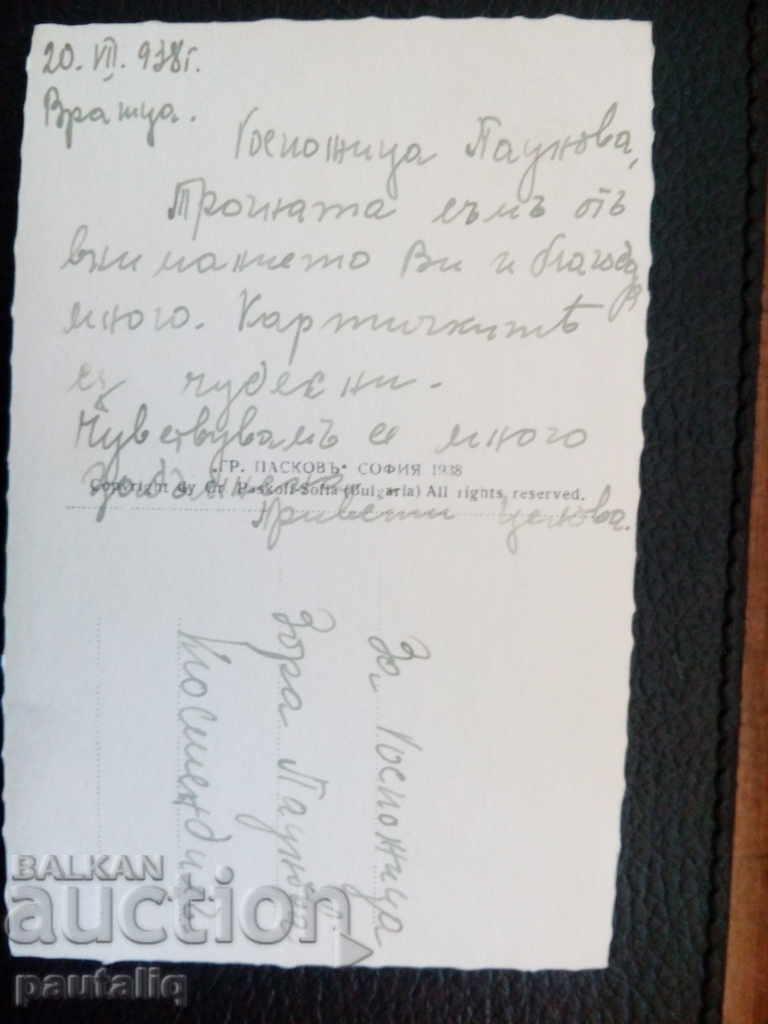 20. VII. 938г.
Вратца.
Госпожица Паунова,
Трогната съмъ отъ
вниманието Ви и благодаря
много. Картичкитѣ
сѫ чудесни.
Чувствувамъ се много
"ГР. ПАСКОВЪ" СОФИЯ 1938
Copyright by Gr. Paskoff-Sofia (Bulgaria) All rights reserved.
Привети Цекова.
За Госпожица
Зора Паунова
Кюстендилъ
BALKAN
auction
pautaliq